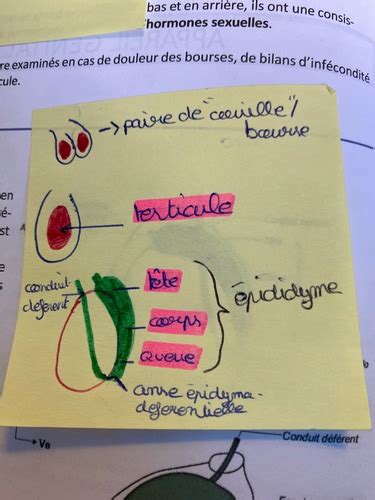 bas et en arrière, ils ont une consis-
hormones sexuelles.
re examinés en cas de douleur des bourses, de bilans d'infécondité
cule.
paire de "couille"/
bourse
en
ré-
st
testicule
e
conduit
déférent
tête
corps
queue
épididyme
anse épidyma-
déférentielle
Ve
Conduit déférent